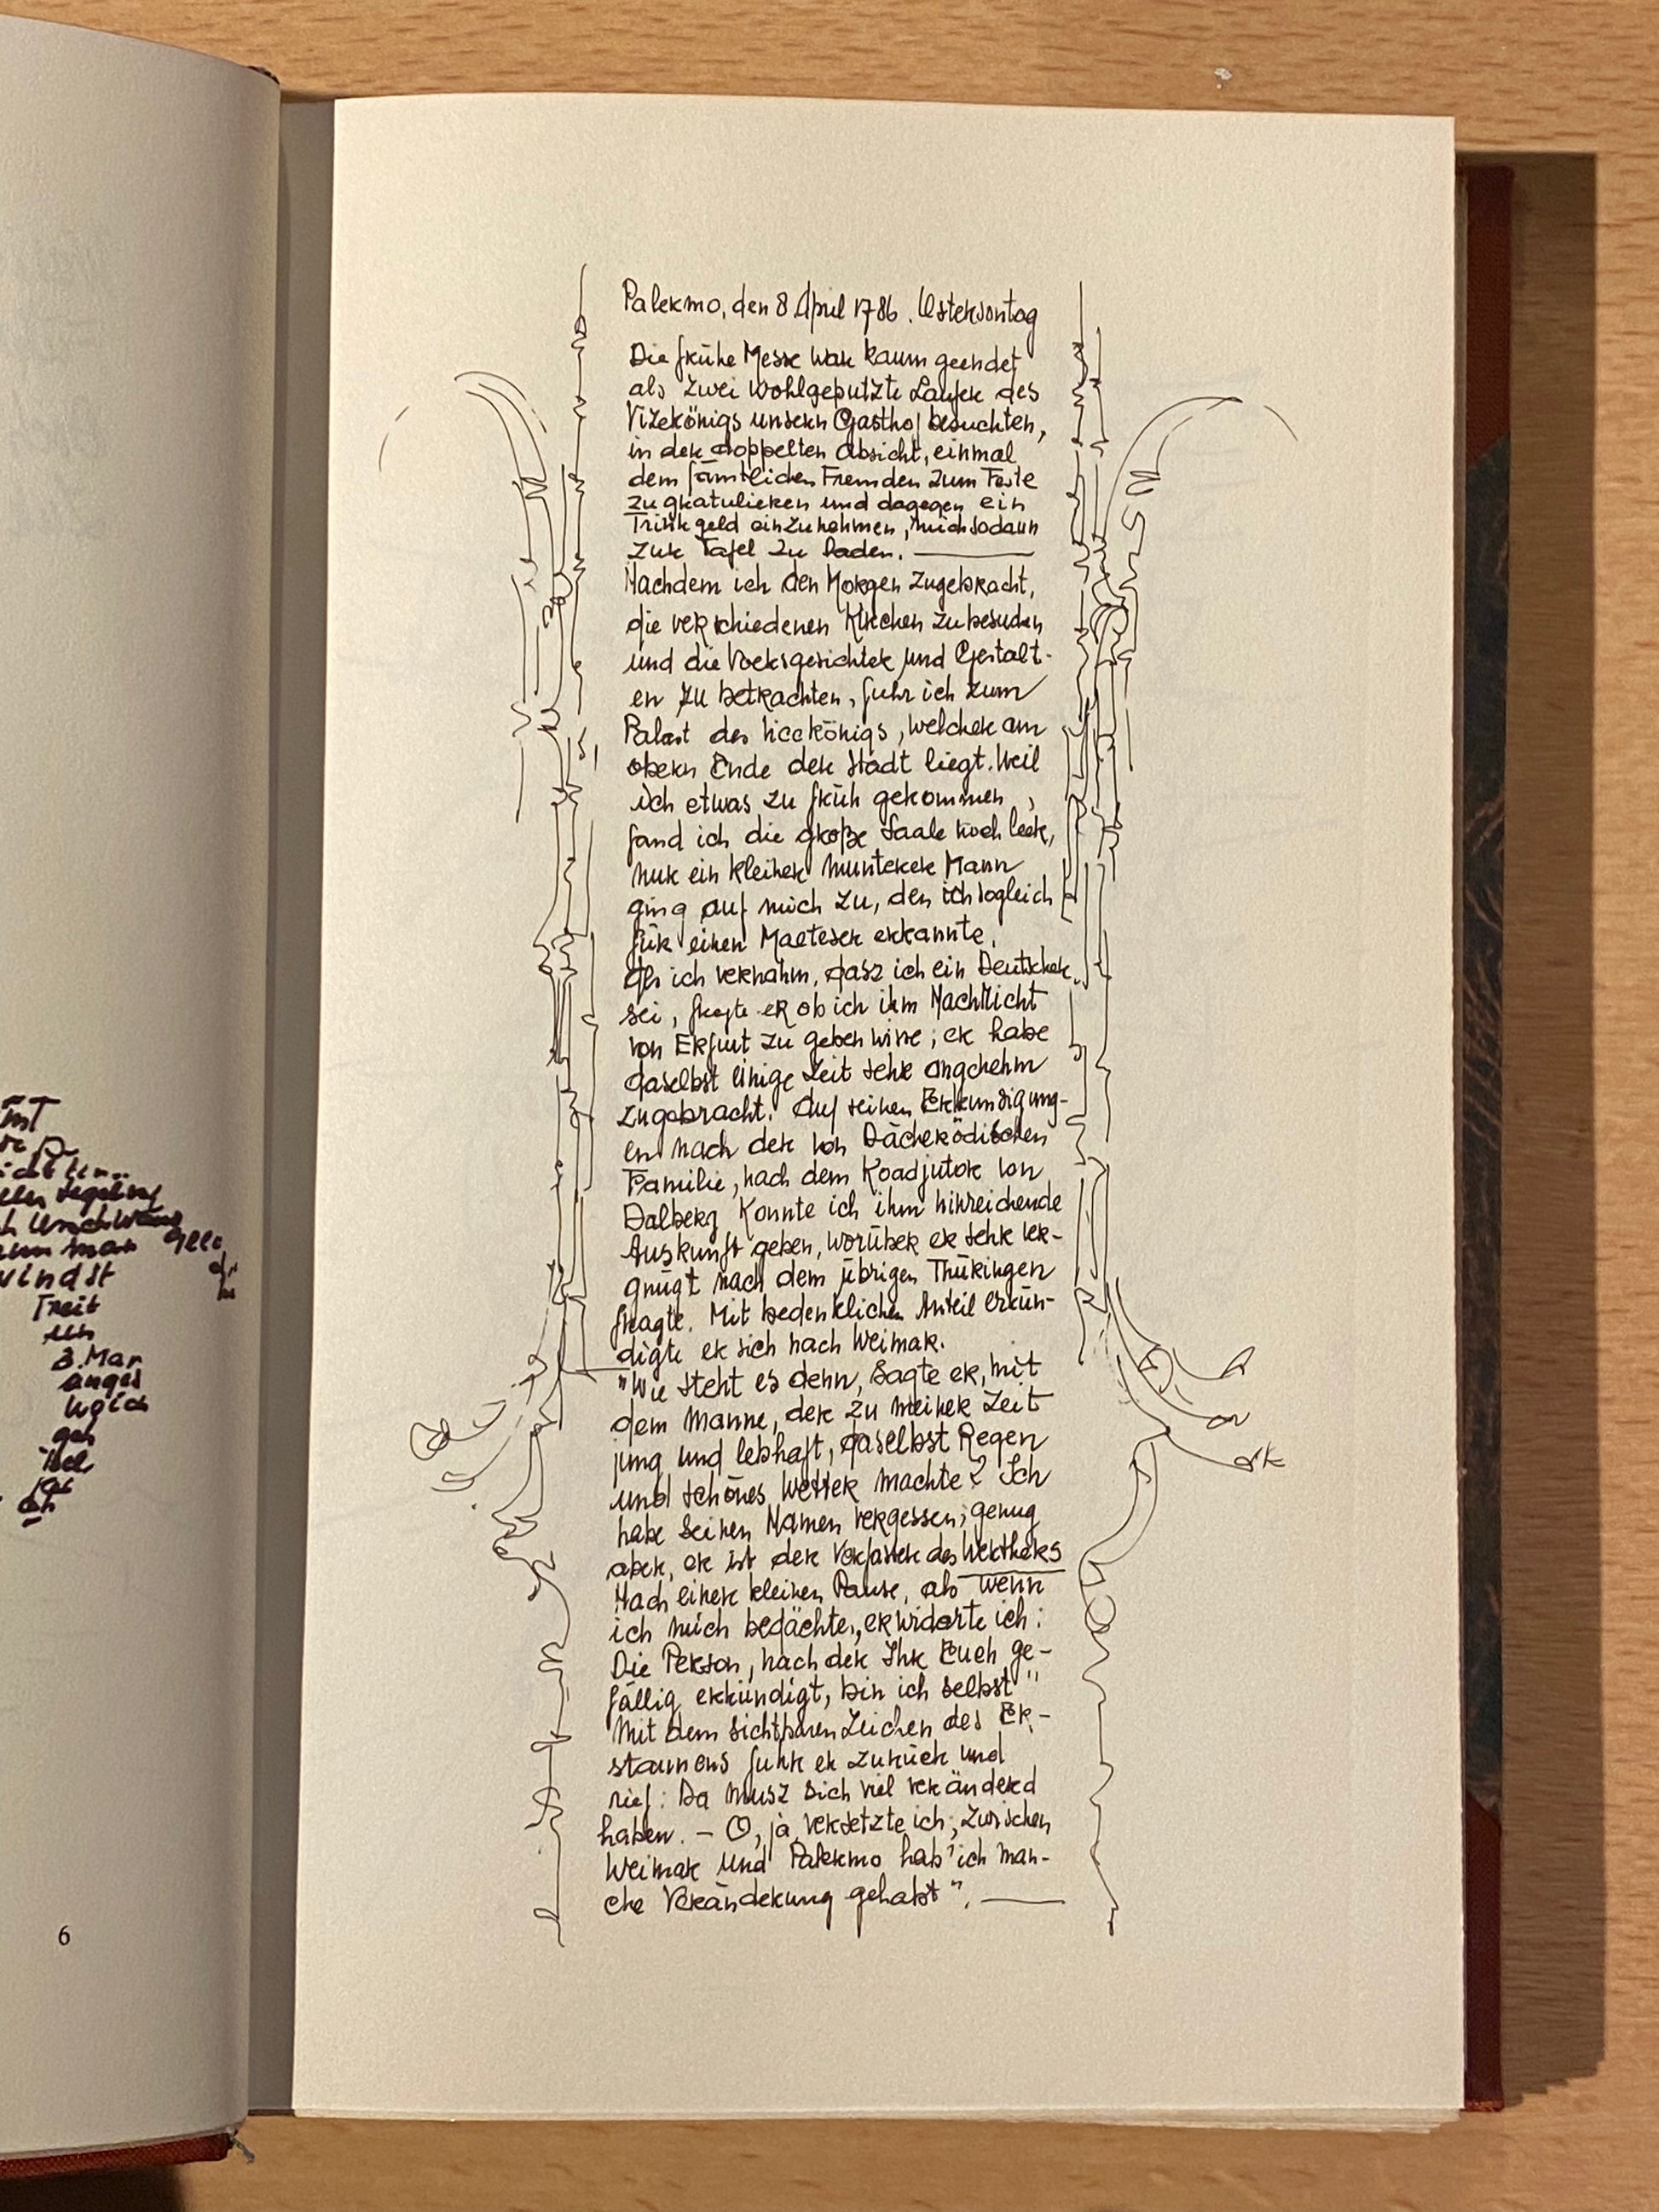 6
Palermo, den 8 April 1786. Ostersontag
Die frühe Messe war kaum geendet
als zwei wohlgeputzte Laufer des
Vizekönigs unsern Gasthof besuchten,
in der doppelten Absicht, einmal
dem sämtlichen Fremden zum Feste
zu gratulieren und dagegen ein
Trinkgeld einzunehmen, mich sodann
zur Tafel zu laden.
Nachdem ich den Morgen zugebracht,
die verschiedenen Kirchen zu besuchen
und die Volksgesichter und Gestalt-
en zu betrachten, fuhr ich zum
Palast des Vicekönigs, welcher am
obern Ende der Stadt liegt. Weil
ich etwas zu früh gekommen,
fand ich die große Saale noch leer,
nur ein kleiner munterer Mann
ging auf mich zu, den ich sogleich
für einen Malteser erkannte.
Als ich vernahm, dasz ich ein Deutscher
sei, fragte er ob ich ihm Nachricht
von Erfurt zu geben wisse; er habe
daselbst einige Zeit sehr angenehm
zugebracht. Auf seinen Erkundigung-
en nach der von Dächerödischen
Familie, nach dem Koadjutor von
Dalberg konnte ich ihm hinreichende
Auskunft geben, worüber er sehr ver-
gnügt nach dem übrigen Thüringen
fragte. Mit bedenklichen Anteil erkun-
digte er sich nach Weimar.
"Wie steht es denn, sagte er, mit
dem Manne, der zu meiner Zeit
jung und lebhaft, daselbst Regen
und schönes Wetter machte? Ich
habe seinen Namen vergessen; genug
aber, er ist der Verfasser des Werthers
Nach einer kleinen Pause, als wenn
ich mich bedächte, erwiderte ich:
Die Person, nach der Ihr Euch ge-
fällig erkündigt, bin ich selbst"
Mit dem sichtbaren Zeichen des Er-
staunens fuhr er zurück und
rief: Da musz sich viel verändered
haben. - O, ja, versetzte ich, zwischen
Weimar und Palermo hab' ich man-
che Veränderung gehabt".